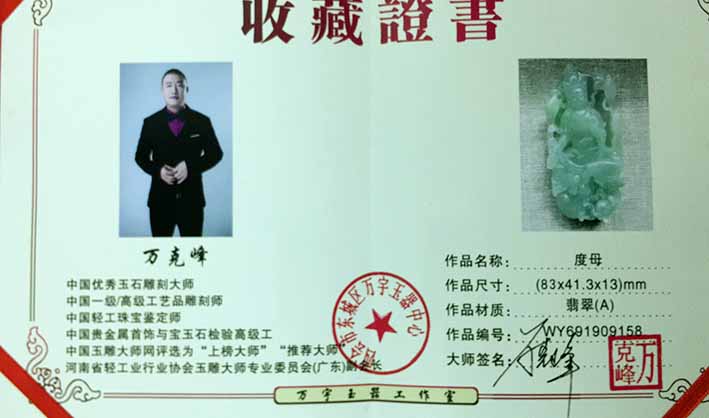 收藏證書
万克峰
中国优秀玉石雕刻大师
中国一级/高级工艺品雕刻师
中国轻工珠宝鉴定师
中国贵金属首饰与宝玉石检验高级工
中国玉雕大师网评选为“上榜大师”“推荐大师”
河南省轻工业行业协会玉雕大师专业委员会(广东)副会长
作品名称: 度母
作品尺寸: (83x41.3x13)mm
作品材质: 翡翠(A)
作品编号: WY691909158
大师签名: 万克峰
会市东城区万字玉器中心
万克峰
万字玉器工作室